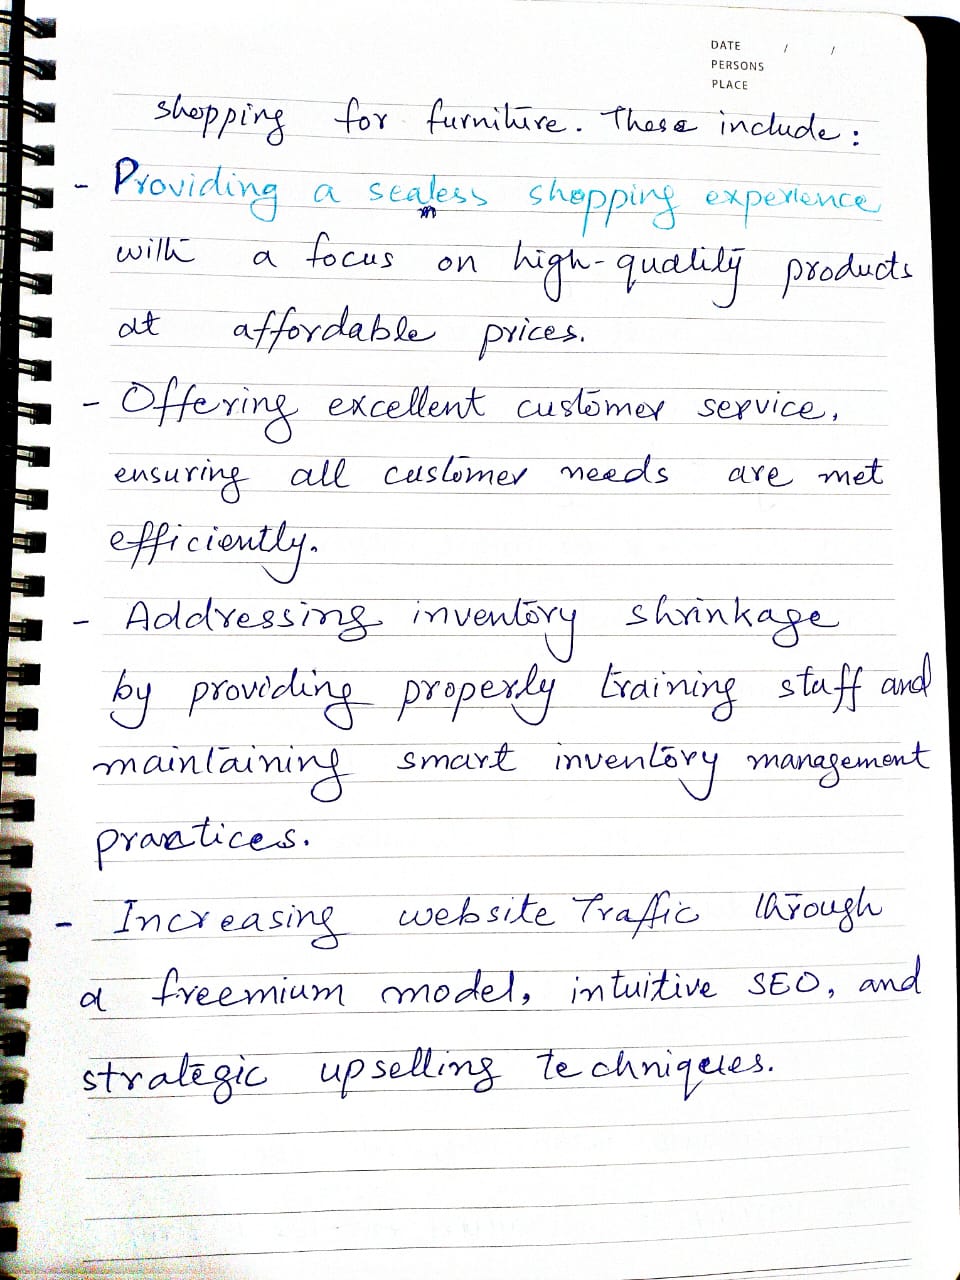 DATE / /
PERSONS
PLACE
shopping for furniture. These include:
- Providing a sealess shopping experience
m
with a focus on high-quality products
at affordable prices.
- Offering excellent customer service,
ensuring all customer needs are met
efficiently.
- Addressing inventory shrinkage
by providing properly training staff and
maintaining smart inventory management
practices.
- Increasing website Traffic through
a freemium model, intuitive SEO, and
strategic upselling techniques.